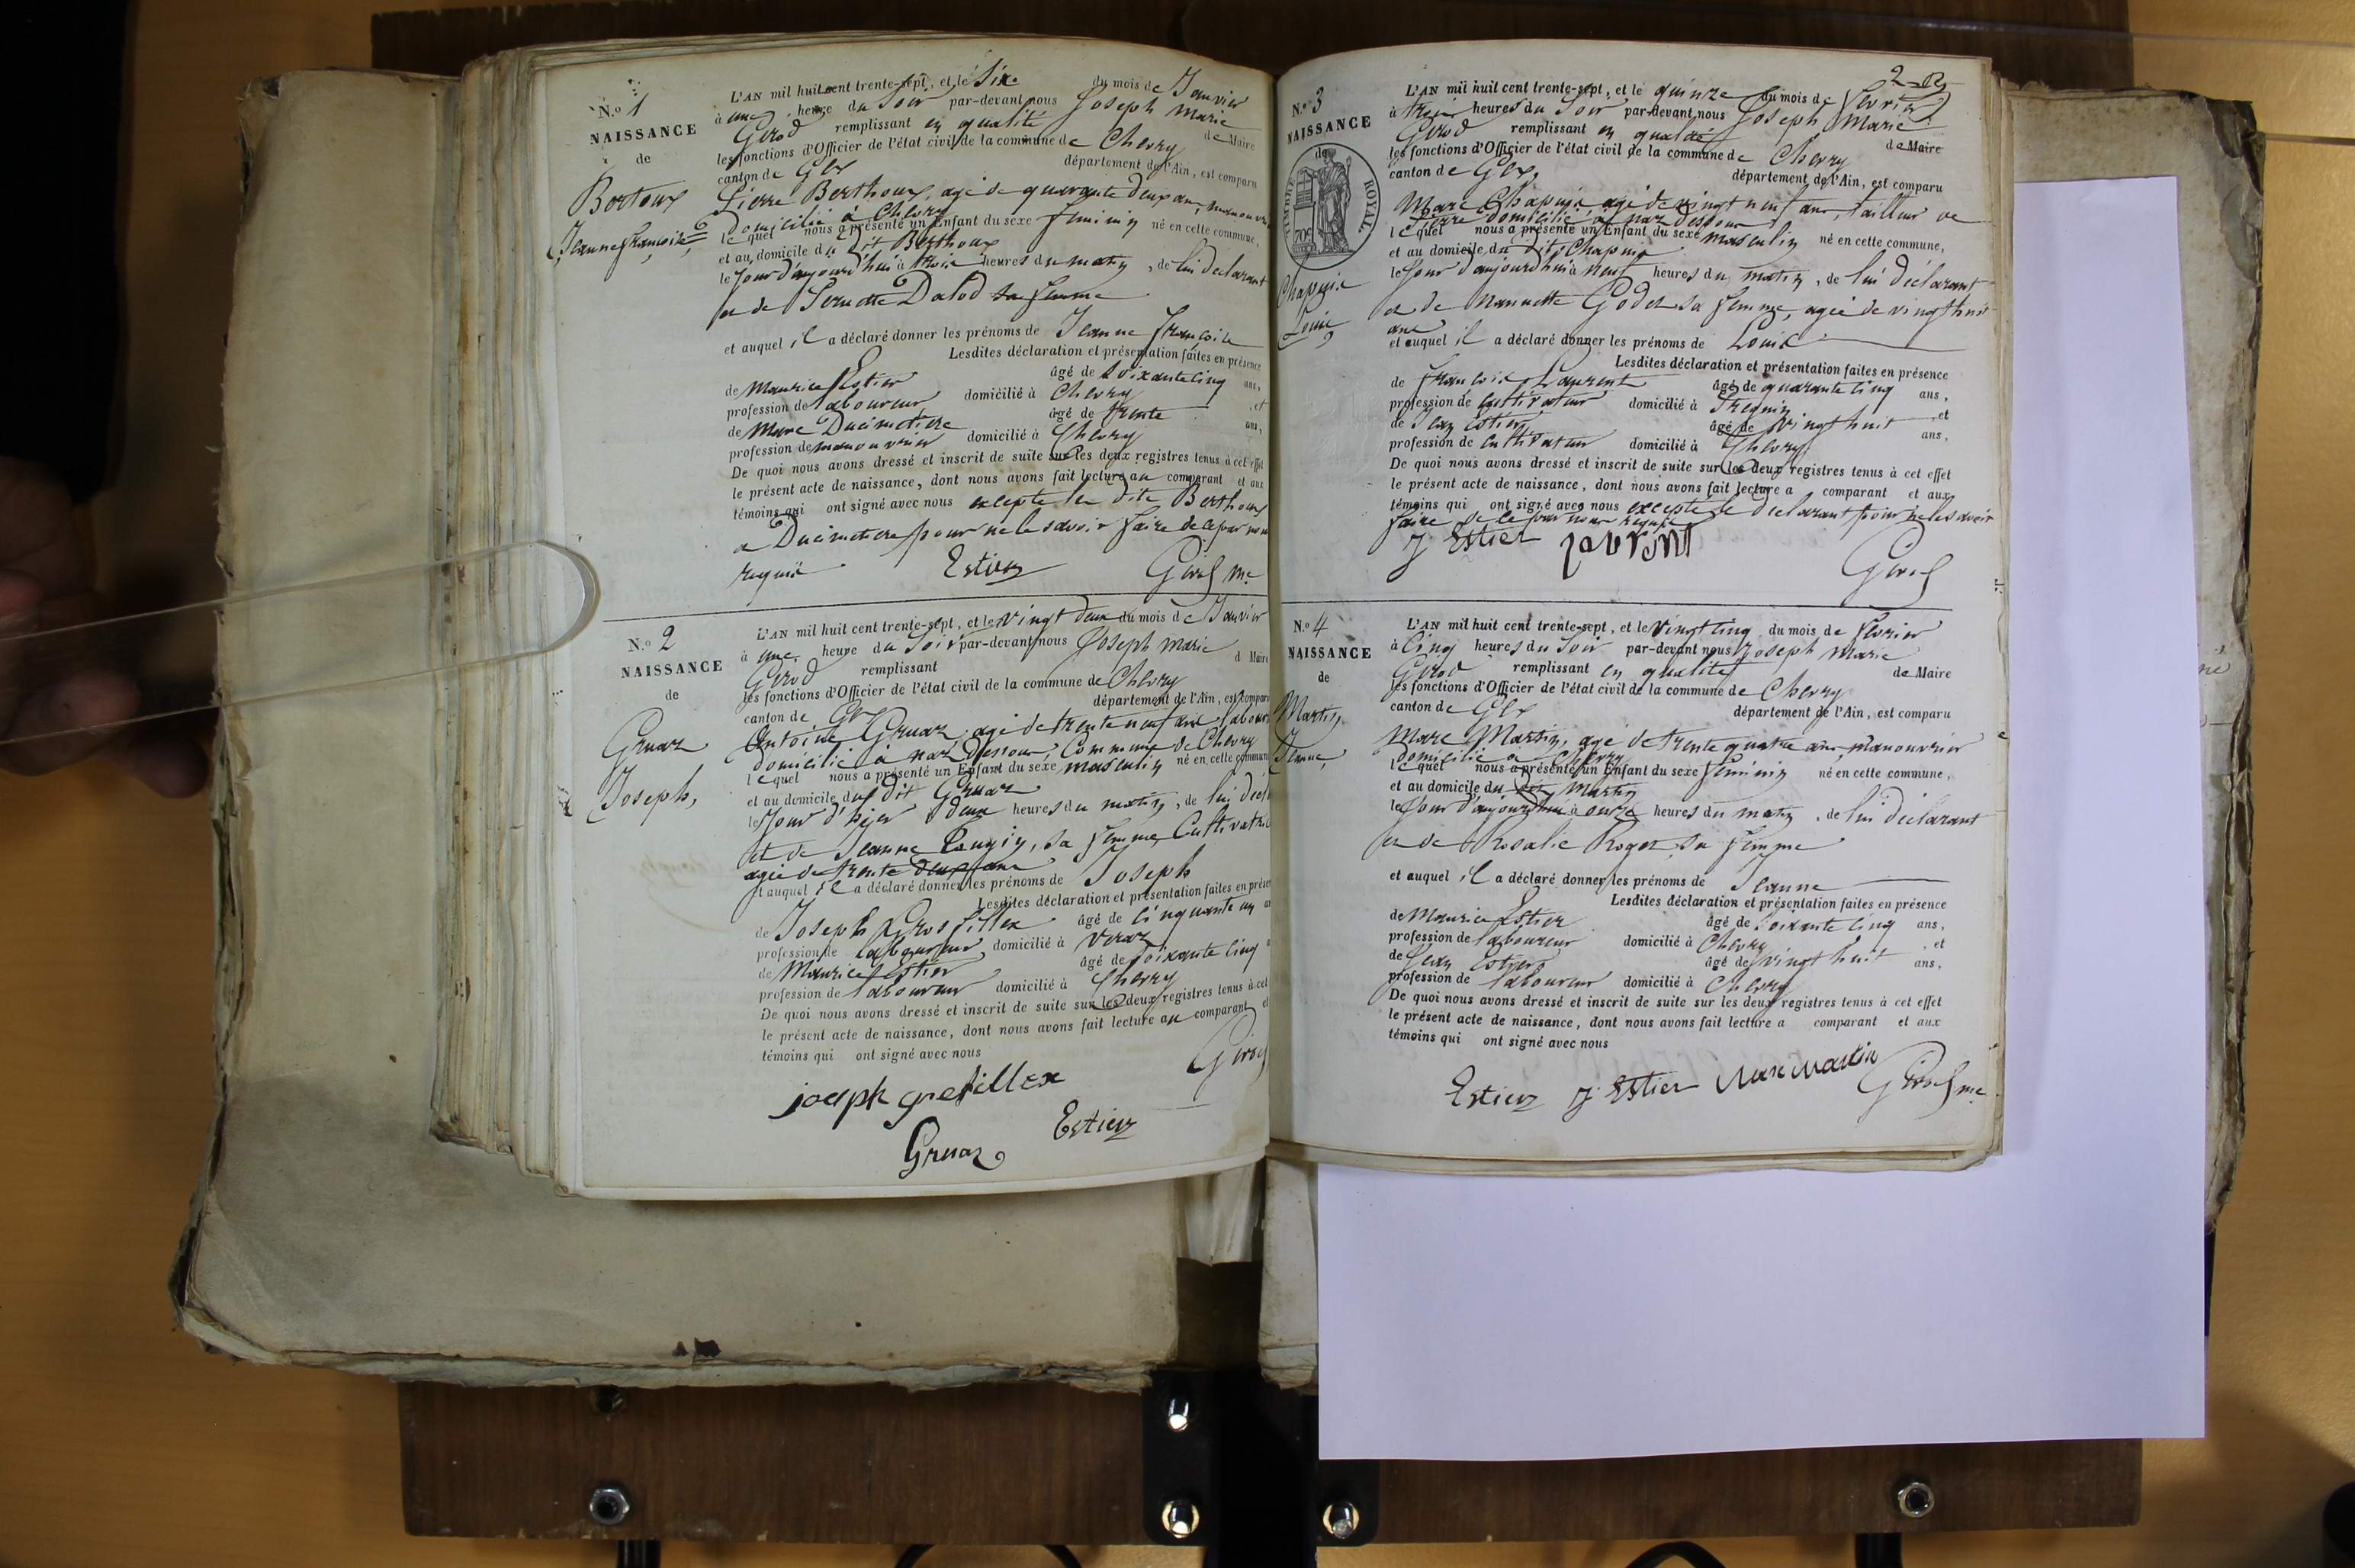 N.o 1
NAISSANCE
de
Bertoux
Jeanne Françoise
L'AN mil huit cent trente-sept, et le Six du mois de Janvier
à une heure du Soir par-devant nous Joseph Marie
Girod remplissant en qualité de Maire
les fonctions d'Officier de l'état civil de la commune de Chevry
canton de Gex département de l'Ain, est comparu
Pierre Berthoux, agé de quarante deux ans, manouvrier
domicilié à Chevry
lequel nous a présenté un Enfant du sexe feminin né en cette commune,
et au domicile du dit Berthoux
le Jour d'aujourd'hui à trois heures du matin, de lui déclarant
et de Pernette Dalod sa femme
et auquel il a déclaré donner les prénoms de Jeanne Françoise
Lesdites déclaration et présentation faites en présence
de Maurice Estier âgé de soixante cinq ans,
profession de laboureur domicilié à Chevry et
de Marc Ducimetiere âgé de trente ans,
profession de manouvrier domicilié à Chevry
De quoi nous avons dressé et inscrit de suite sur les deux registres tenus à cet effet
le présent acte de naissance, dont nous avons fait lecture au comparant et aux
témoins qui ont signé avec nous excepté les dits Berthoux
et Ducimetiere pour ne le savoir faire de ce par nous
requis
Estier Girod me
N.o 2
NAISSANCE
de
Gruaz
Joseph,
L'AN mil huit cent trente-sept, et le vingt deux du mois de Janvier
à une heure du Soir par-devant nous Joseph Marie
Girod remplissant d Maire
les fonctions d'Officier de l'état civil de la commune de Chevry
canton de Gex département de l'Ain, est comparu
Antoine Gruaz, agé de trente neuf ans laboureur
domicilié à naz dessous, Commune de Chevry
lequel nous a présenté un Enfant du sexe masculin né en cette commune
et au domicile du dit Gruaz
le Jour d'hier deux heures du matin, de lui décl
et de Jeanne sa femme, Cultivatrice
agée de trente deux ans
et auquel il a déclaré donner les prénoms de Joseph
Lesdites déclaration et présentation faites en présen
de Joseph Grosfillex âgé de cinquante un
profession de laboureur domicilié à Veraz
de Maurice Estier âgé de soixante cinq
profession de laboureur domicilié à Chevry
De quoi nous avons dressé et inscrit de suite sur les deux registres tenus à cet
le présent acte de naissance, dont nous avons fait lecture au comparant et
témoins qui ont signé avec nous
Girod
joseph grefillex
Estier
Gruaz
2
N.o 3
NAISSANCE
de
TIMBRE ROYAL
70c
Chapuis
Louis
L'AN mil huit cent trente-sept, et le quinze du mois de fevrier
à trois heures du Soir par-devant nous Joseph Marie
Girod remplissant en qualité de Maire
les fonctions d'Officier de l'état civil de la commune de Chevry
canton de Gex, département de l'Ain, est comparu
Marc Chapuis agé de vingt neuf ans, tailleur de
pierre domicilié à naz dessous
lequel nous a présenté un Enfant du sexe masculin né en cette commune,
et au domicile du dit Chapuis
le Jour d'aujourdhui à neuf heures du matin, de lui déclarant
et de Nannette Godet sa femme, agée de vingt huit
ans
et auquel il a déclaré donner les prénoms de Louis
Lesdites déclaration et présentation faites en présence
de François Laurent âgé de quarante cinq ans,
profession de cultivateur domicilié à et
de Jean Estier âgé de vingt huit ans,
profession de cultivateur domicilié à Chevry
De quoi nous avons dressé et inscrit de suite sur les deux registres tenus à cet effet
le présent acte de naissance, dont nous avons fait lecture a comparant et aux
témoins qui ont signé avec nous excepté le déclarant pour ne les avoir
faire de ce par nous requis
J Estier laurent
Girod
N.o 4
NAISSANCE
de
Martin
Jeanne
L'AN mil huit cent trente-sept, et le vingt cinq du mois de fevrier
à Cinq heures du Soir par-devant nous Joseph Marie
Girod remplissant en qualité de Maire
les fonctions d'Officier de l'état civil de la commune de Chevry
canton de Gex département de l'Ain, est comparu
Marc Martin, agé de trente quatre ans, manouvrier
domicilié à Chevry
lequel nous a présenté un Enfant du sexe féminin né en cette commune,
et au domicile du dit Martin
le Jour d'aujourdhui à onze heures du matin, de lui déclarant
et de Rosalie Roget sa femme
et auquel il a déclaré donner les prénoms de Jeanne
Lesdites déclaration et présentation faites en présence
de Maurice Estier âgé de soixante cinq ans,
profession de laboureur domicilié à Chevry, et
de Jean Estier âgé de vingt huit ans,
profession de laboureur domicilié à Chevry
De quoi nous avons dressé et inscrit de suite sur les deux registres tenus à cet effet
le présent acte de naissance, dont nous avons fait lecture a comparant et aux
témoins qui ont signé avec nous
Estier J Estier Marc Martin Girod me